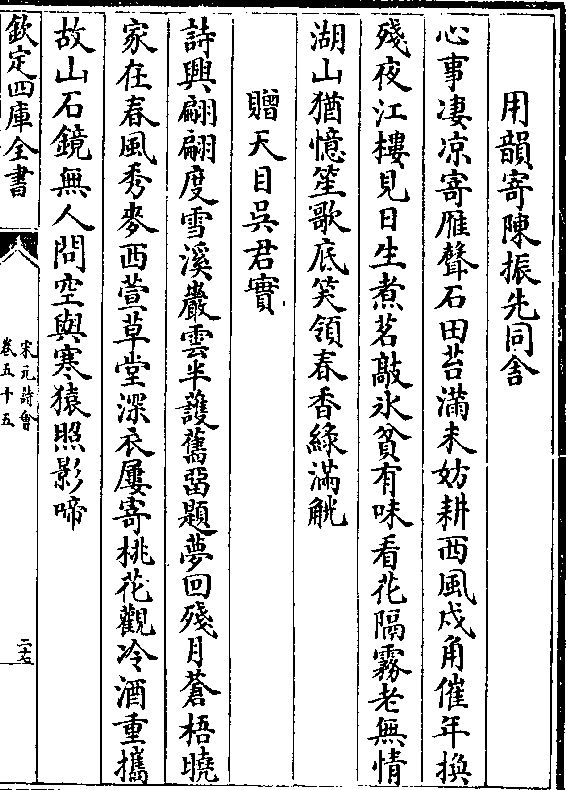 用韻寄陳振先同舎
心事凄凉寄雁聲石田苔滿未妨耕西風戍角催年換
殘夜江樓見日生煮茗敲氷貧有味看花隔霧老無情
湖山猶憶笙歌底笑領春香綠滿觥
贈天目吳君實
詩興翩翩度雪溪巖雲半護舊留題夢回殘月蒼梧曉
家在春風秀麥西萱草堂深衣屢寄桃花觀冷酒重攜
故山石鏡無人問空與寒猿照影啼
欽定四庫全書
宋元詩會
卷五十五